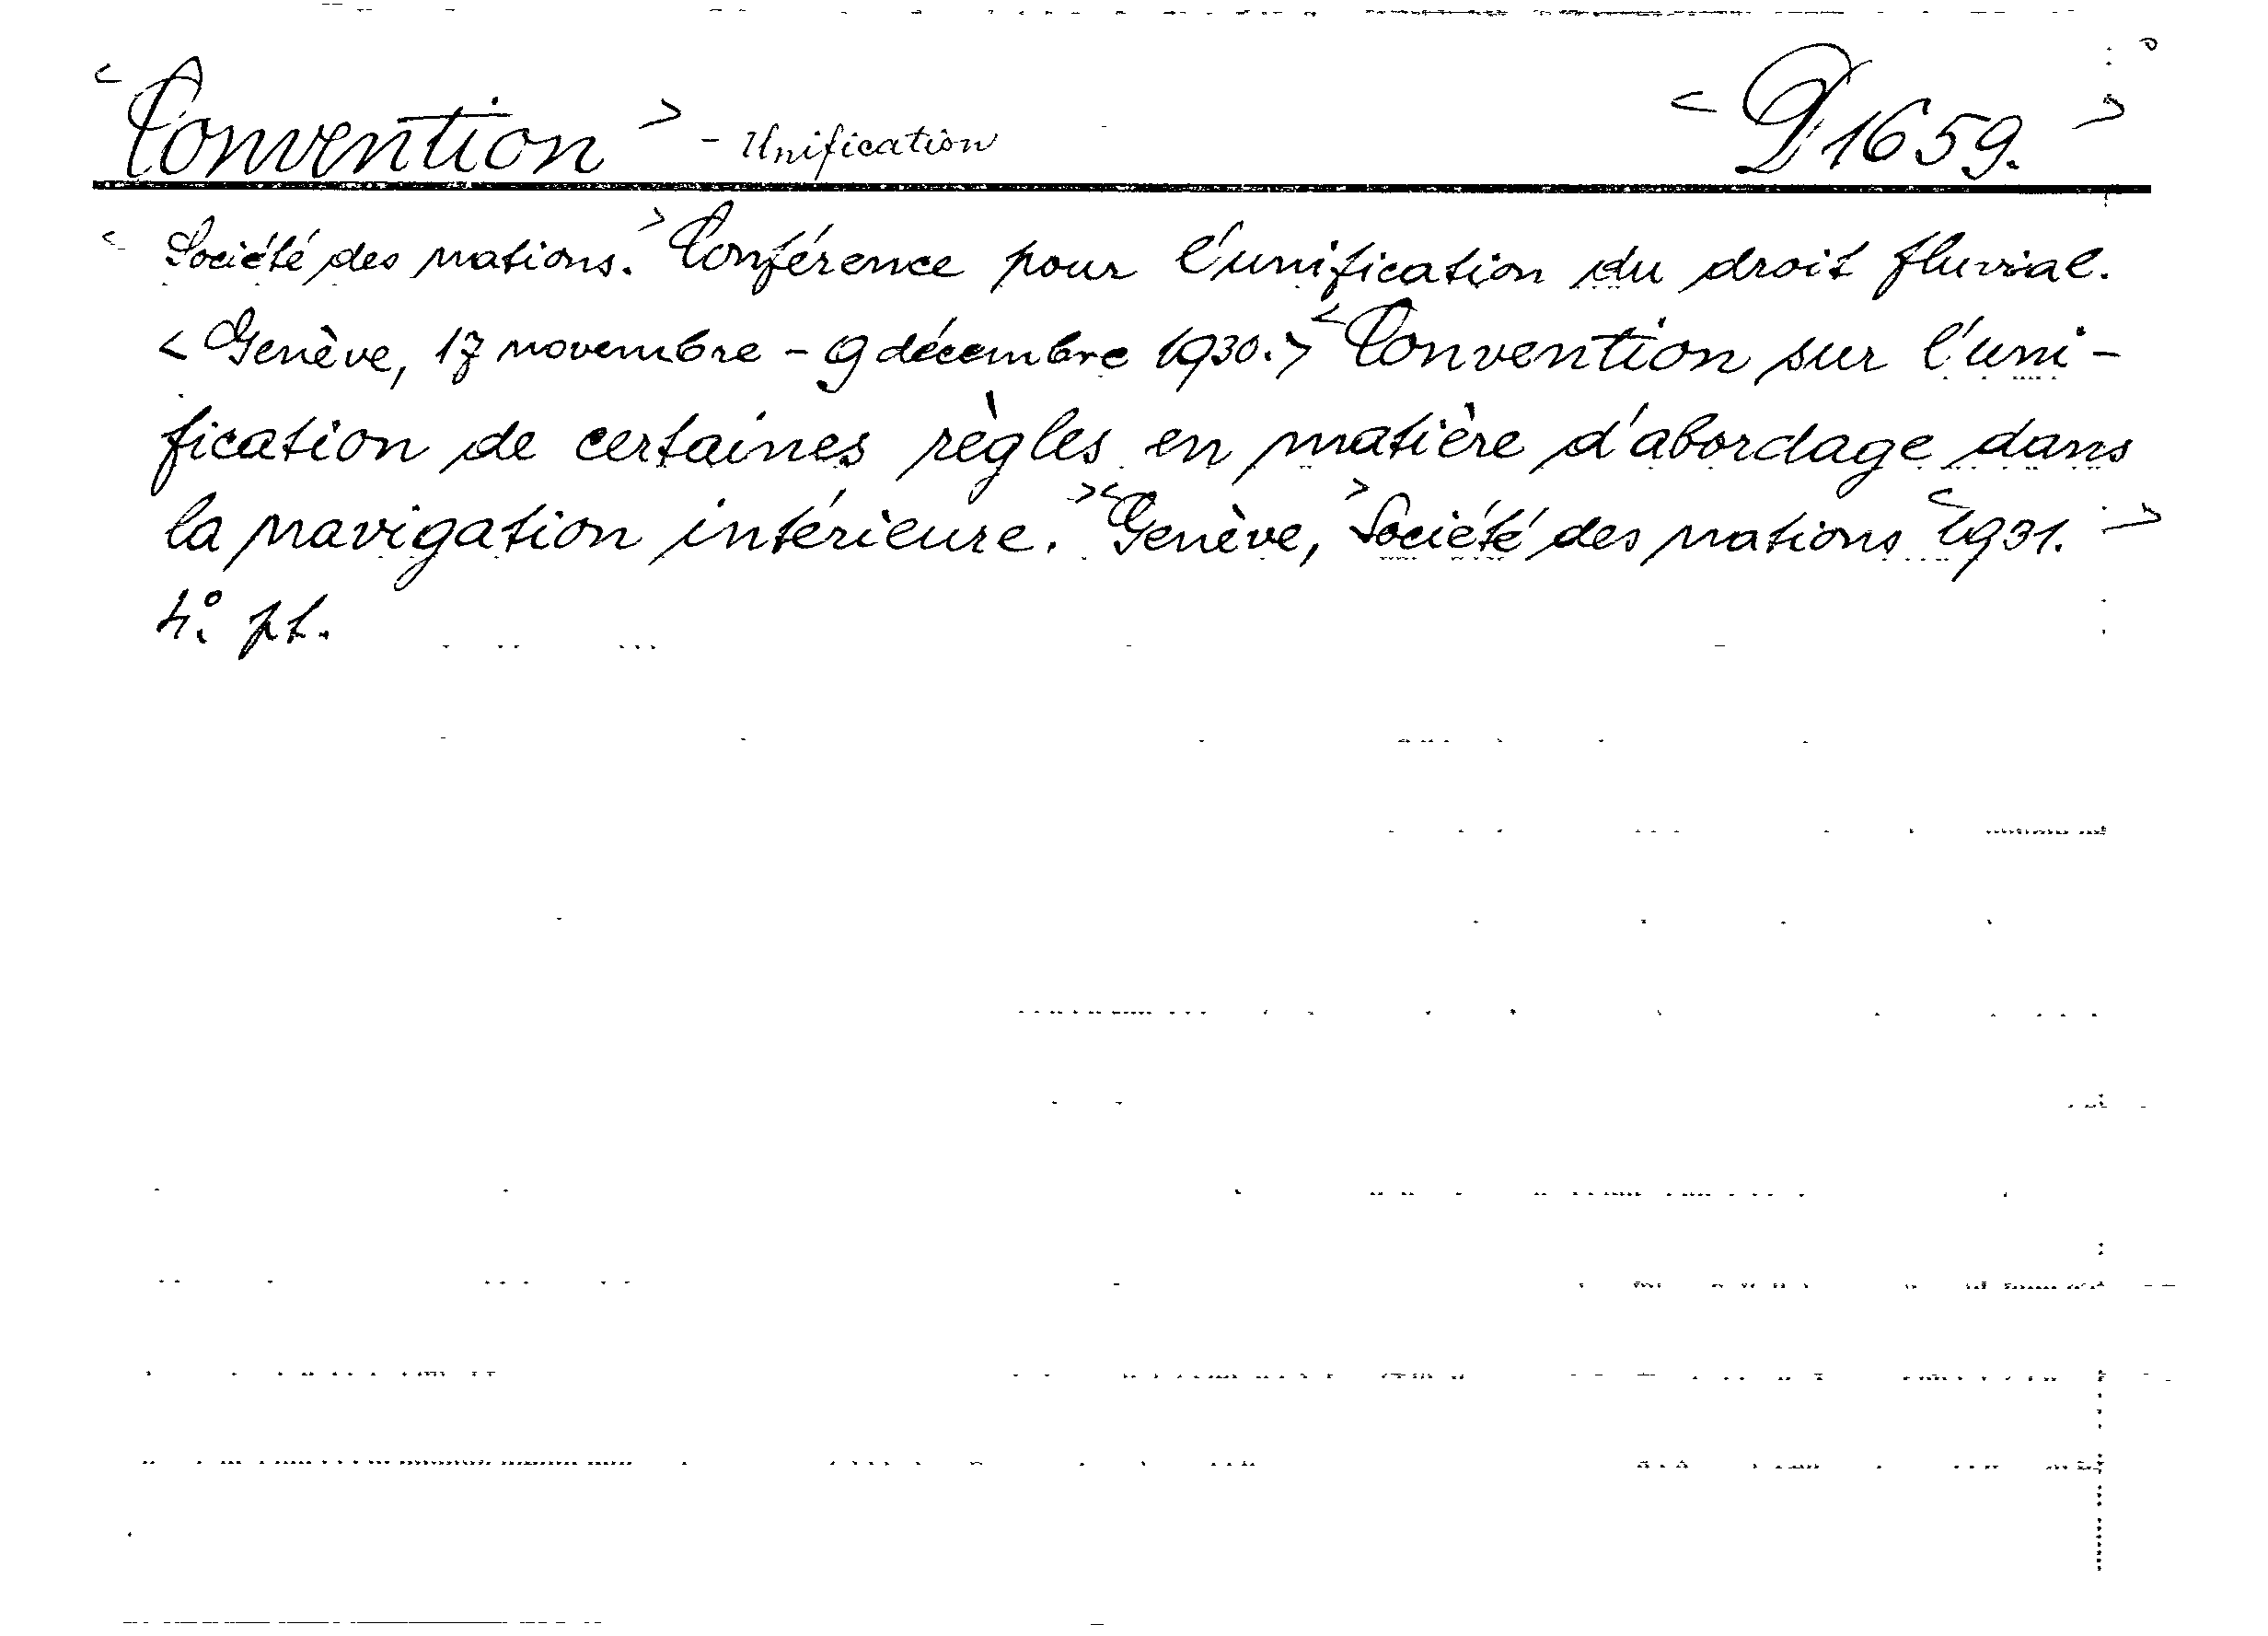 < Convention > - Unification < D 1659. >
< Société des nations. > Conférence pour l'unification du droit fluvial.
< Genève, 17 novembre - 9 décembre 1930. > < Convention sur l'uni-
fication de certaines règles en matière d'abordage dans
la navigation intérieure. > < Genève, > Société des nations < 1931. >
4°. pt.